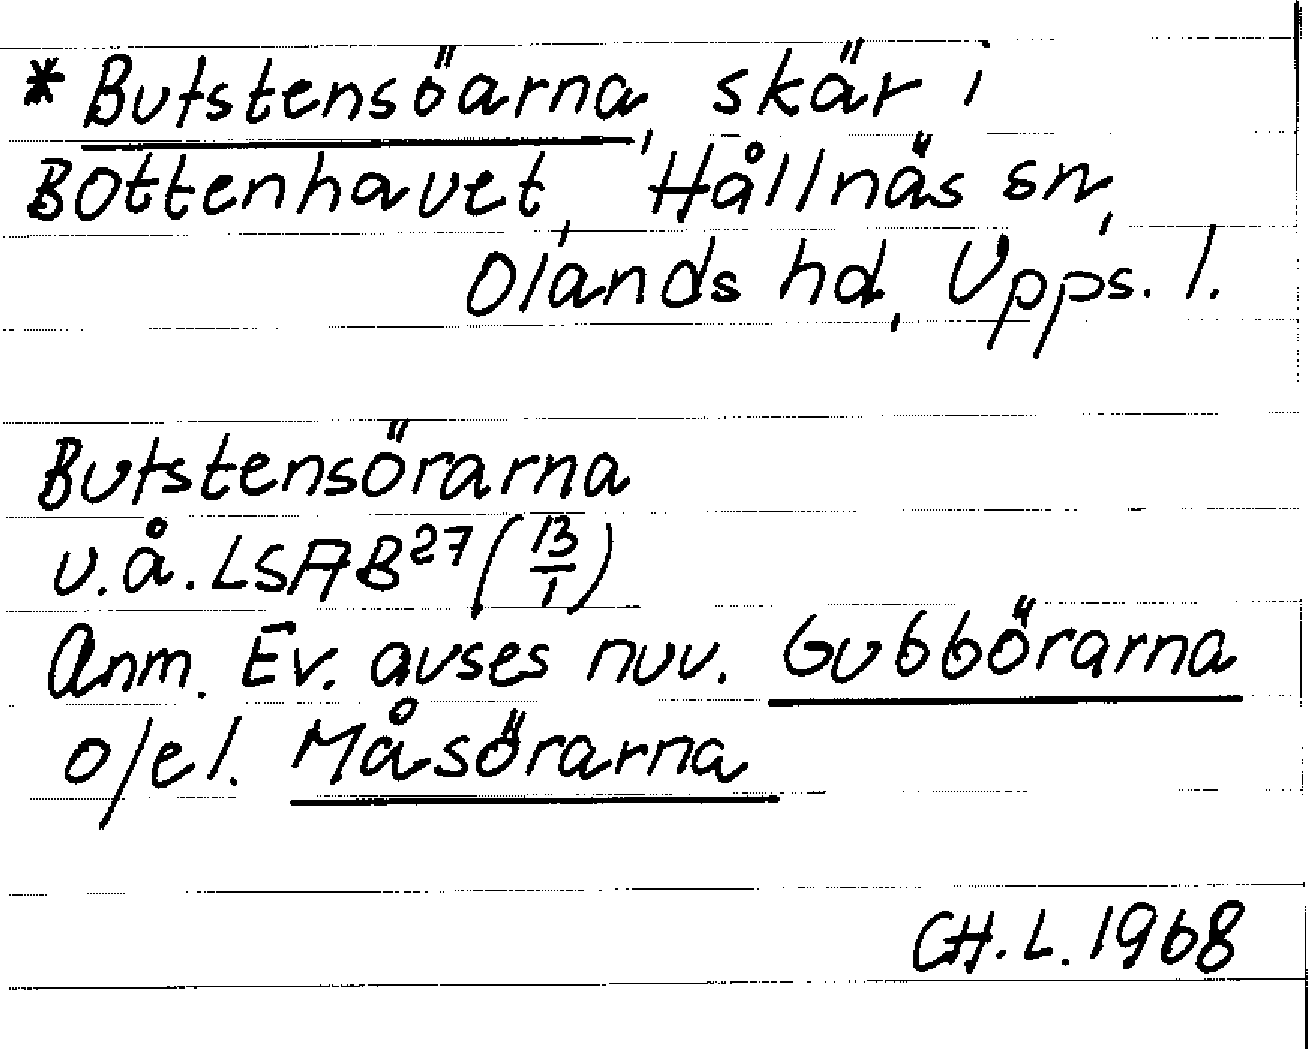 * Butstensöarna, skär i
Bottenhavet, Hållnäs sn,
Olands hd, Upps. l.
Butstensörarna
u.å. LSAB²⁷ (13/1)
Anm. Ev. avses nuv. Gubbörarna
o/el. Måsörarna
CH.L. 1968